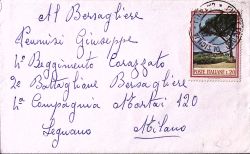 Al Bersagliere
Pennisi Giuseppe
4º Reggimento Corazzato
2º Battaglione Bersagliere
4ª Compagnia Mortai 120
Legnano Milano
POSTE ITALIANE L. 20